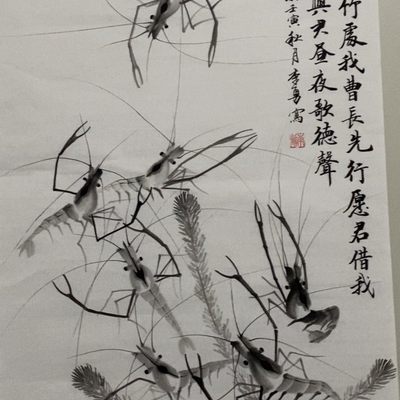 竹處我曹長先行愿君借我
與君昼夜歌德聲
壬寅秋月李勇寫